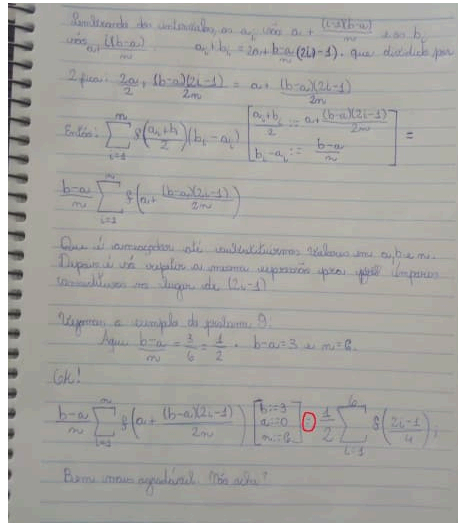 Lembrando dos intervalos, os a_i são a + \frac{(i-1)(b-a)}{n} e os b_i
são a + \frac{i(b-a)}{n} . a_i + b_i = 2a + \frac{b-a}{n}(2i-1). que dividido por
2 fica: \frac{2a}{2} + \frac{(b-a)(2i-1)}{2n} = a + \frac{(b-a)(2i-1)}{2n}
Então: \sum_{i=1}^{n} f\left(\frac{a_i+b_i}{2}\right)(b_i-a_i) \left[\frac{a_i+b_i}{2} := a + \frac{(b-a)(2i-1)}{2n} \quad b_i-a_i := \frac{b-a}{n}\right] =
\frac{b-a}{n} \sum_{i=1}^{n} f\left(a + \frac{(b-a)(2i-1)}{2n}\right)
Que é ameaçador até substituirmos valores em a, b e n.
Depois é só repetir a mesma expressão para ímpares
consecutivos no lugar de (2i-1)
Vejamos o exemplo do problema 9:
Aqui \frac{b-a}{n} = \frac{3}{6} = \frac{1}{2} . b-a=3 e n=6.
Ok!
\frac{b-a}{n} \sum_{i=1}^{n} f\left(a + \frac{(b-a)(2i-1)}{2n}\right) \left[b:=3 \quad a:=0 \quad n:=6\right] = \frac{1}{2} \sum_{i=1}^{6} f\left(\frac{2i-1}{4}\right);
Bem mais agradável. Não acha?